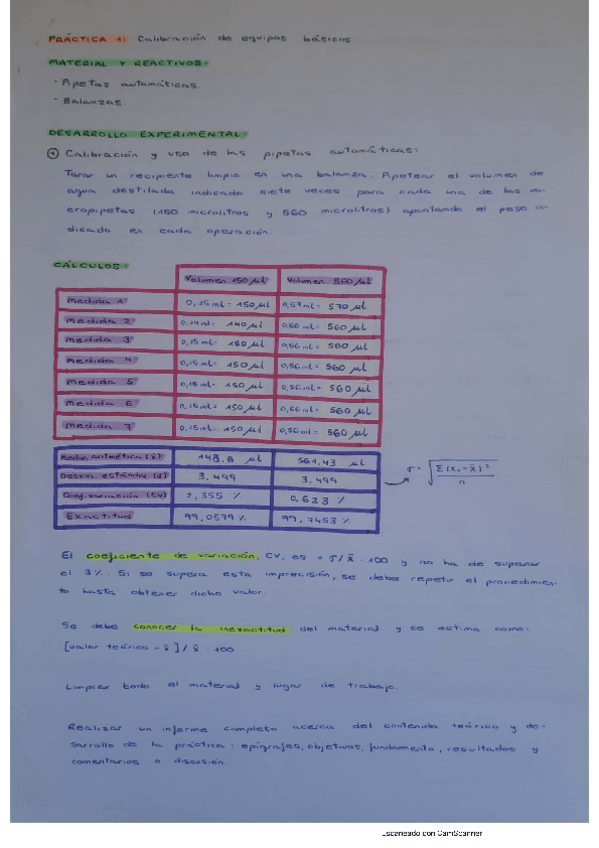 PRÁCTICA 1: Calibración de equipos básicos
MATERIAL Y REACTIVOS:
· Pipetas automáticas.
· Balanzas.
DESARROLLO EXPERIMENTAL:
1 Calibración y uso de las pipetas automáticas:
Tarar un recipiente limpio en una balanza. Pipetear el volumen de
agua destilada indicado siete veces para cada una de las mi-
cropipetas (150 microlitros y 560 microlitros) apuntando el peso in-
dicado en cada operación.
CÁLCULOS:
Volumen 150 µl Volumen 560 µl
Medida 1 0,15 ml = 150 µl 0,57 ml = 570 µl
Medida 2 0,14 ml = 140 µl 0,56 ml = 560 µl
Medida 3 0,15 ml = 150 µl 0,56 ml = 560 µl
Medida 4 0,15 ml = 150 µl 0,56 ml = 560 µl
Medida 5 0,15 ml = 150 µl 0,56 ml = 560 µl
Medida 6 0,15 ml = 150 µl 0,56 ml = 560 µl
Medida 7 0,15 ml = 150 µl 0,56 ml = 560 µl
Media aritmética (x̄) 148,6 µl 561,43 µl
Desviac. estándar (σ) 3,499 3,499
Coef. variación (CV) 2,355 % 0,623 %
Exactitud 99,0579 % 99,7453 %
σ = √ Σ(xᵢ - x̄)² / n
El coeficiente de variación, CV, es = σ/x̄ · 100 y no ha de superar
el 3%. Si se supera esta imprecisión, se debe repetir el procedimien-
to hasta obtener dicho valor.
Se debe conocer la inexactitud del material y se estima como:
[valor teórico - x̄] / x̄ · 100
Limpiar todo el material y lugar de trabajo.
Realizar un informe completo acerca del contenido teórico y de-
sarrollo de la práctica: epígrafes, objetivos, fundamento, resultados y
comentarios o discusión.
Escaneado con CamScanner